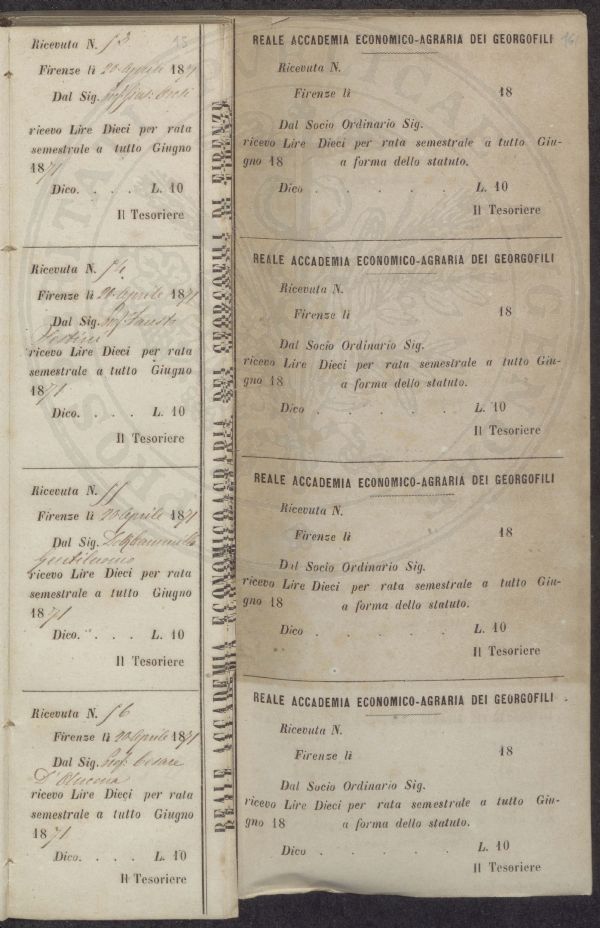 Ricevuta N. 53
Firenze li 20 Aprile 1871
Dal Sig.
ricevo Lire Dieci per rata
semestrale a tutto Giugno
1871
Dico. . . . L. 10
Il Tesoriere
Ricevuta N. 54
Firenze li 20 Aprile 1871
Dal Sig. Fausto
ricevo Lire Dieci per rata
semestrale a tutto Giugno
1871
Dico. . . . L. 10
Il Tesoriere
Ricevuta N. 55
Firenze li 20 Aprile 1871
Dal Sig.
Gentiluomo
ricevo Lire Dieci per rata
semestrale a tutto Giugno
1871
Dico. . . . L. 10
Il Tesoriere
Ricevuta N. 56
Firenze li 20 Aprile 1871
Dal Sig. Cesare
D'Ancona
ricevo Lire Dieci per rata
semestrale a tutto Giugno
1871
Dico. . . . L. 10
Il Tesoriere
REALE ACCADEMIA ECONOMICO-AGRARIA DEI GEORGOFILI DI FIRENZE
REALE ACCADEMIA ECONOMICO-AGRARIA DEI GEORGOFILI
Ricevuta N.
Firenze li 18
Dal Socio Ordinario Sig.
ricevo Lire Dieci per rata semestrale a tutto Giu-
gno 18 a forma dello statuto.
Dico . . . . L. 10
Il Tesoriere
REALE ACCADEMIA ECONOMICO-AGRARIA DEI GEORGOFILI
Ricevuta N.
Firenze li 18
Dal Socio Ordinario Sig.
ricevo Lire Dieci per rata semestrale a tutto Giu-
gno 18 a forma dello statuto.
Dico . . . . L. 10
Il Tesoriere
REALE ACCADEMIA ECONOMICO-AGRARIA DEI GEORGOFILI
Ricevuta N.
Firenze li 18
Dal Socio Ordinario Sig.
ricevo Lire Dieci per rata semestrale a tutto Giu-
gno 18 a forma dello statuto.
Dico . . . . L. 10
Il Tesoriere
REALE ACCADEMIA ECONOMICO-AGRARIA DEI GEORGOFILI
Ricevuta N.
Firenze li 18
Dal Socio Ordinario Sig.
ricevo Lire Dieci per rata semestrale a tutto Giu-
gno 18 a forma dello statuto.
Dico . . . . L. 10
Il Tesoriere